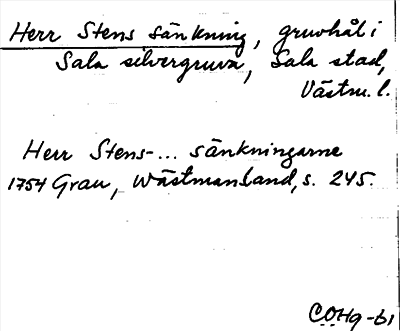 Herr Stens sänkning, gruvhål i
Sala silvergruva, Sala stad,
Västm. l.
Herr Stens-... sänkningarne
1754 Grau, Wästmanland, s. 245.
COHg-61